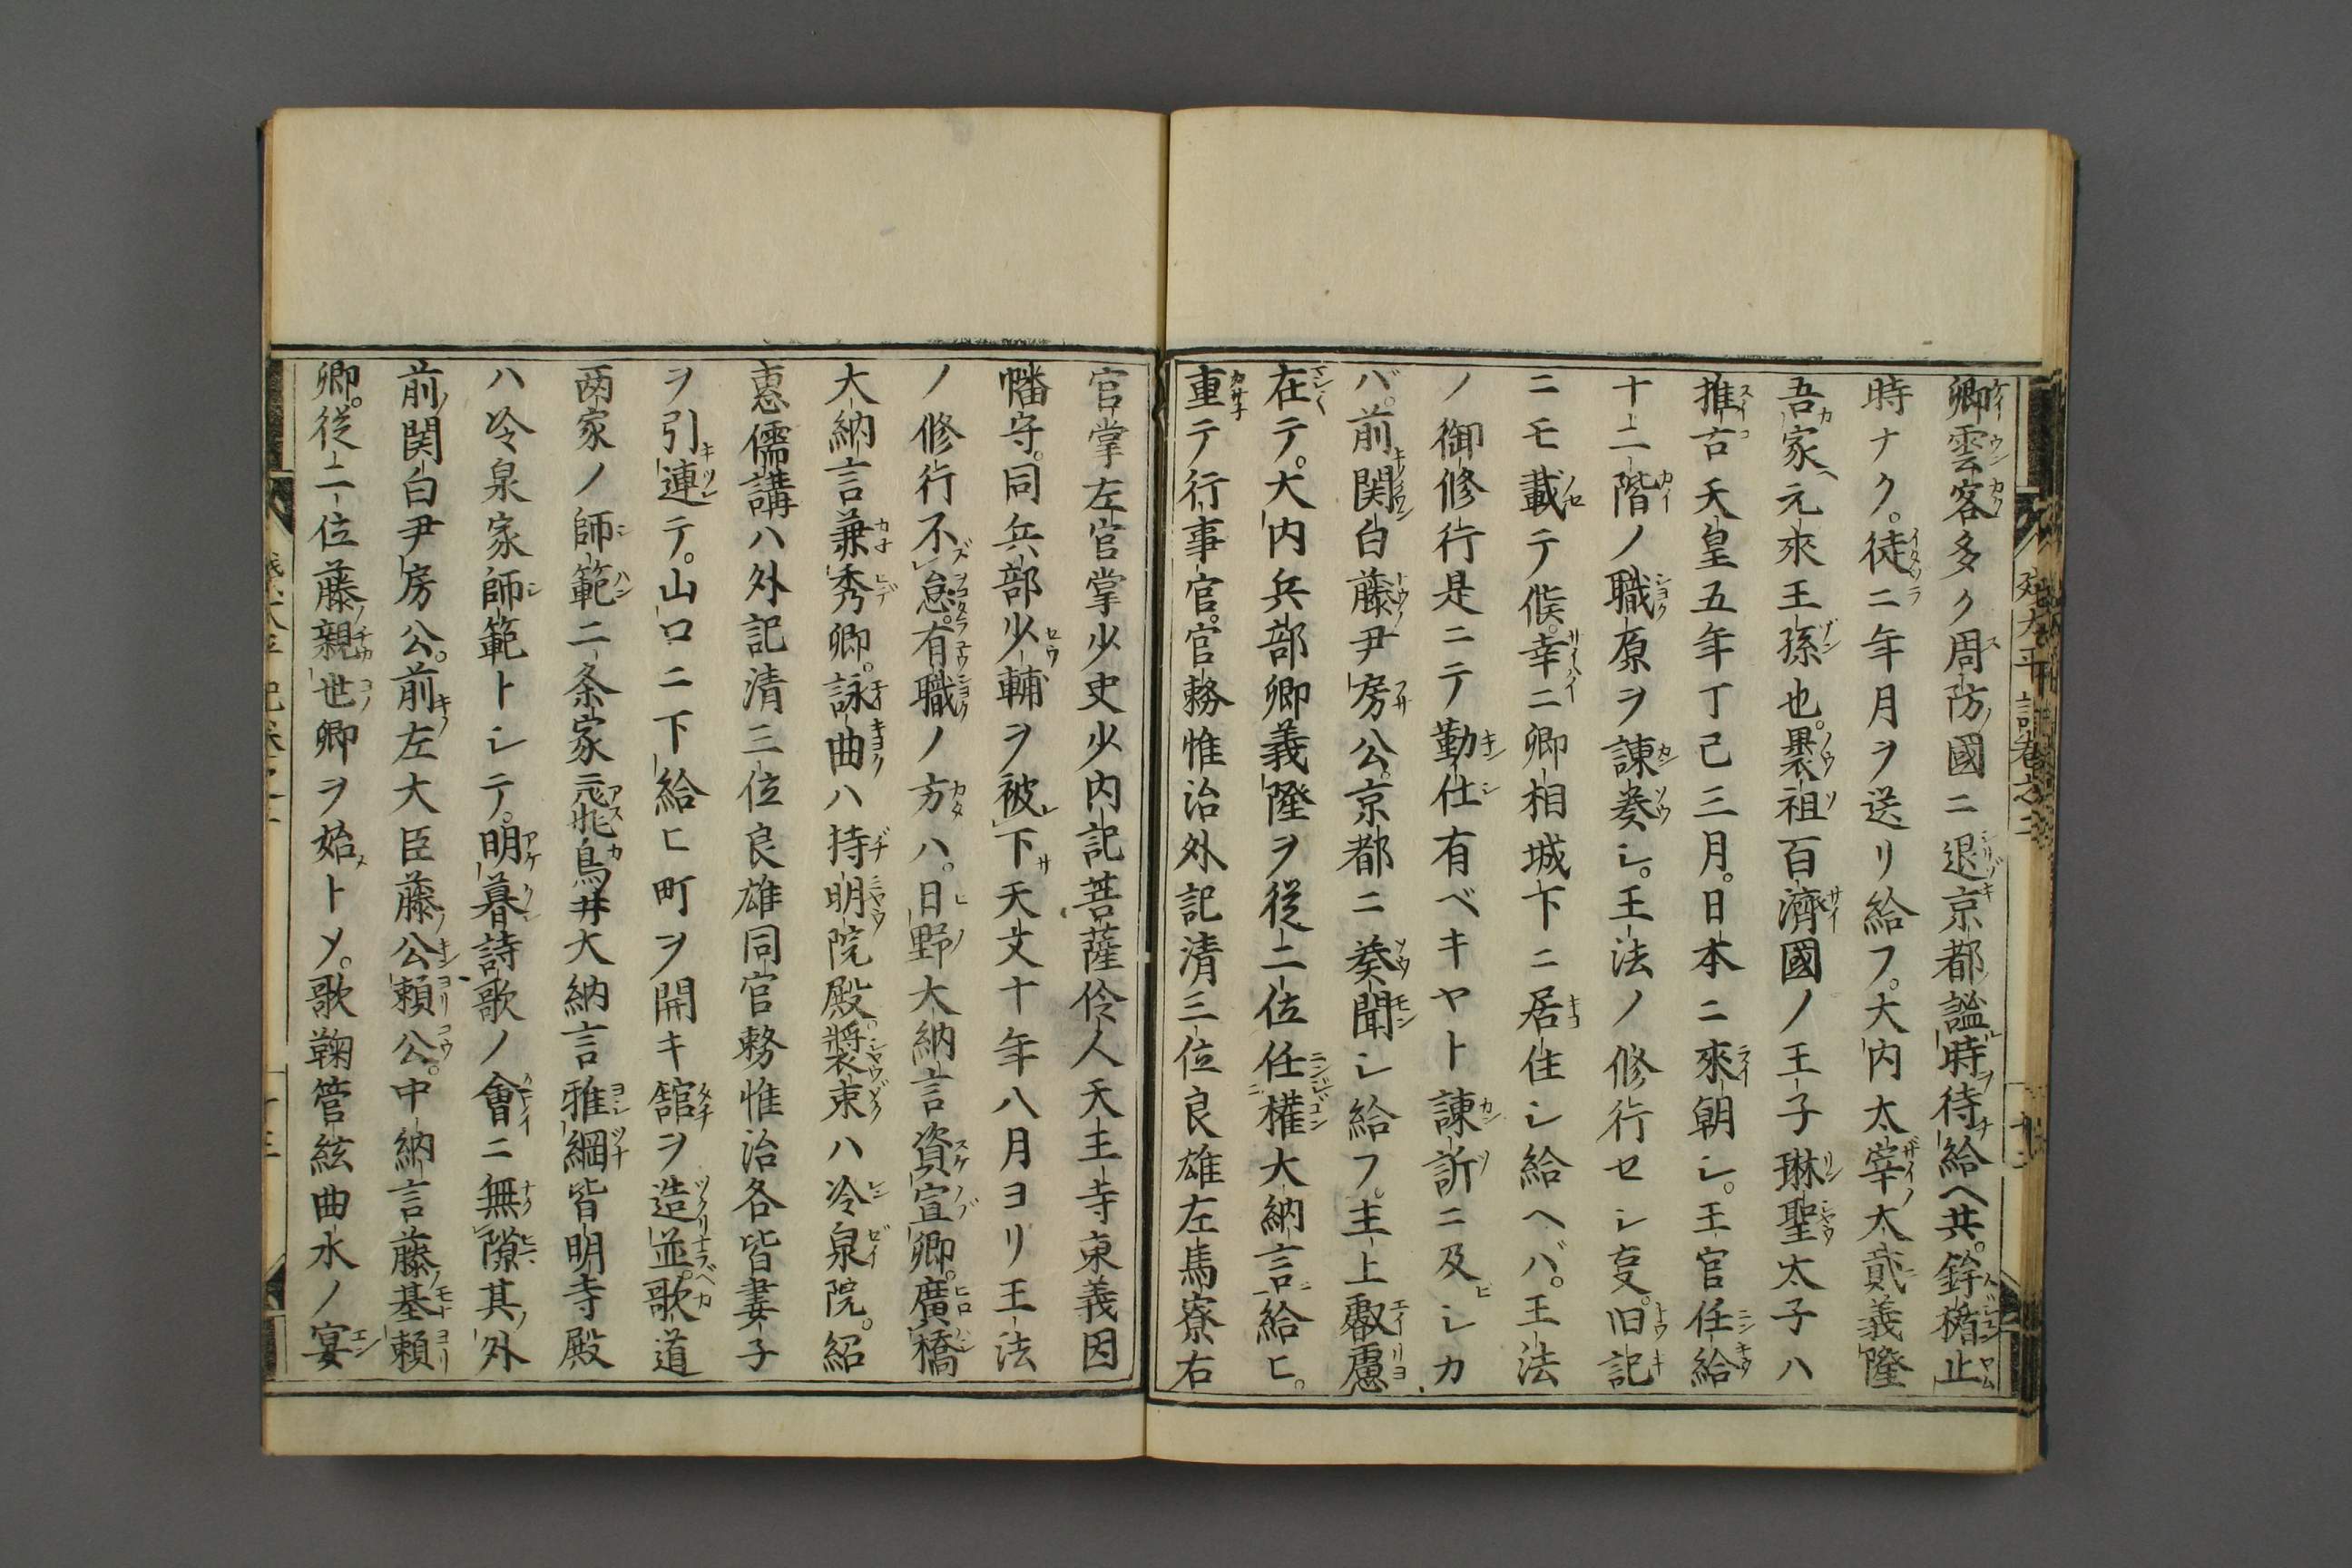 卿雲客多ク周防國ニ退京都謐時待給ヘ共。鉾楯止
時ナク。徒ニ年月ヲ送リ給フ。大内太宰大貮義隆
吾家ヘ元來王孫也。曩祖百濟國ノ王子琳聖太子ハ
推古天皇五年丁巳三月。日本ニ來朝シ。王官任給
十二階ノ職原ヲ諌奏シ。王法ノ修行セシ㕝。旧記
ニモ載テ候。幸ニ卿相城下ニ居住シ給ヘバ。王法
ノ御修行是ニテ勤仕有ベキヤト諌訴ニ及シカ
バ。前関白藤尹房公。京都ニ奏聞シ給フ。主上叡慮
在テ。大内兵部卿義隆ヲ従二位任權大納言給ヒ。
重テ行事官。官務惟治外記清三位良雄左馬寮右
官掌左官掌少史少内記菩薩伶人天王寺東義因
幡守。同兵部少輔ヲ被下天文十年八月ヨリ王法
ノ修行不怠。有職ノ方ハ。日野大納言資宣卿。廣橋
大納言兼秀卿。詠曲ハ持明院殿。裝束ハ冷泉院。紹
惠儒講ハ外記清三位良雄同官務惟治各皆妻子
ヲ引連テ。山口ニ下給ヒ町ヲ開キ舘ヲ造並。歌道
両家ノ師範二条家飛鳥井大納言雅綱皆明寺殿
ハ冷泉家師範トシテ。明暮詩歌ノ會ニ無隙其外
前関白尹房公。前左大臣藤公頼公。中納言藤基頼
卿。従二位藤親世卿ヲ始トメ。歌鞠管絃曲水ノ宴